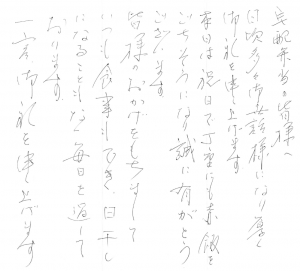 宅配弁当の皆様へ
日頃多々御世話様になり厚く
御礼を申し上げます
本日は祝日で丁重にも赤飯を
ごちそうになり誠に有がとう
ございます
皆様のおかげをもちまして
いつも食事もでき、日干し
になることもなく毎日を過して
おります。
一言御礼を申し上げます